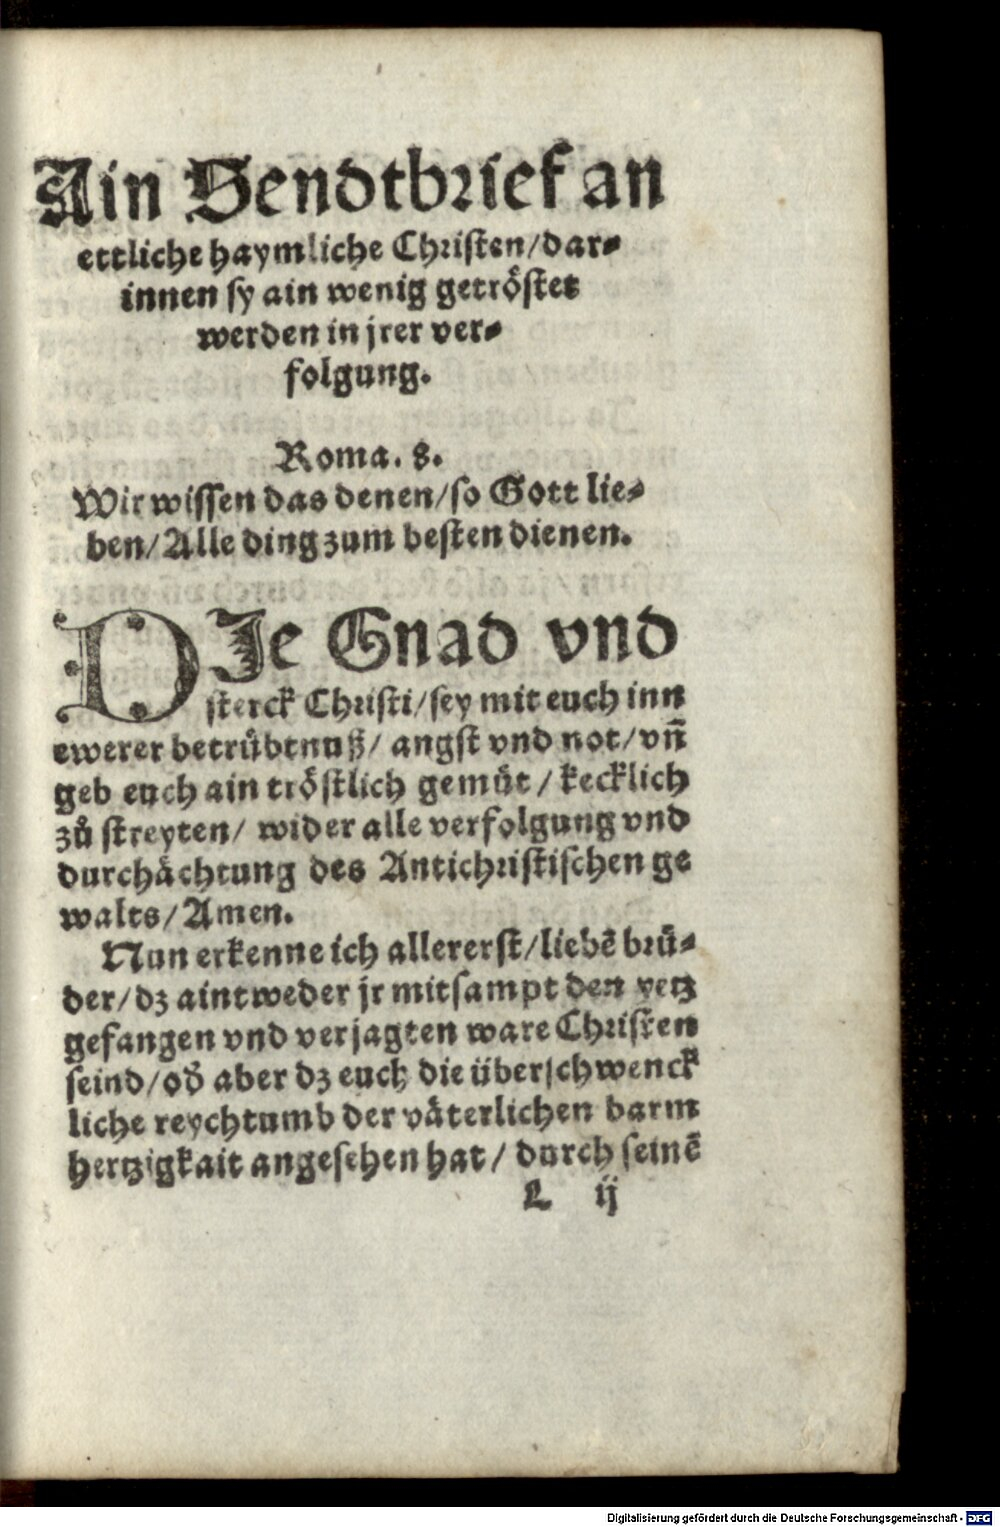 Ain Sendtbrief an
ettliche haymliche Christen/dar⸗
innen sy ain wenig getröstet
werden in jrer ver⸗
folgung.
Roma. 8.
Wir wissen das denen/so Gott lie⸗
ben/Alle ding zum besten dienen.
DIe Gnad vnd
sterck Christi/sey mit euch inn
ewerer betrübtnuß/ angst vnd not/vn̄
geb euch ain tröstlich gemüt / kecklich
zů streyten/ wider alle verfolgung vnd
durchächtung des Antichristischen ge
walts/Amen.
Nun erkenne ich allererst/liebē brü⸗
der/dz aintweder jr mitsampt den yetz
gefangen vnd verjagten ware Christen
seind/od̕ aber dz euch die überschwenck
liche reychtumb der väterlichen barm
hertzigkait angesehen hat/ durch seinē
L ij
Digitalisierung gefördert durch die Deutsche Forschungsgemeinschaft - DFG